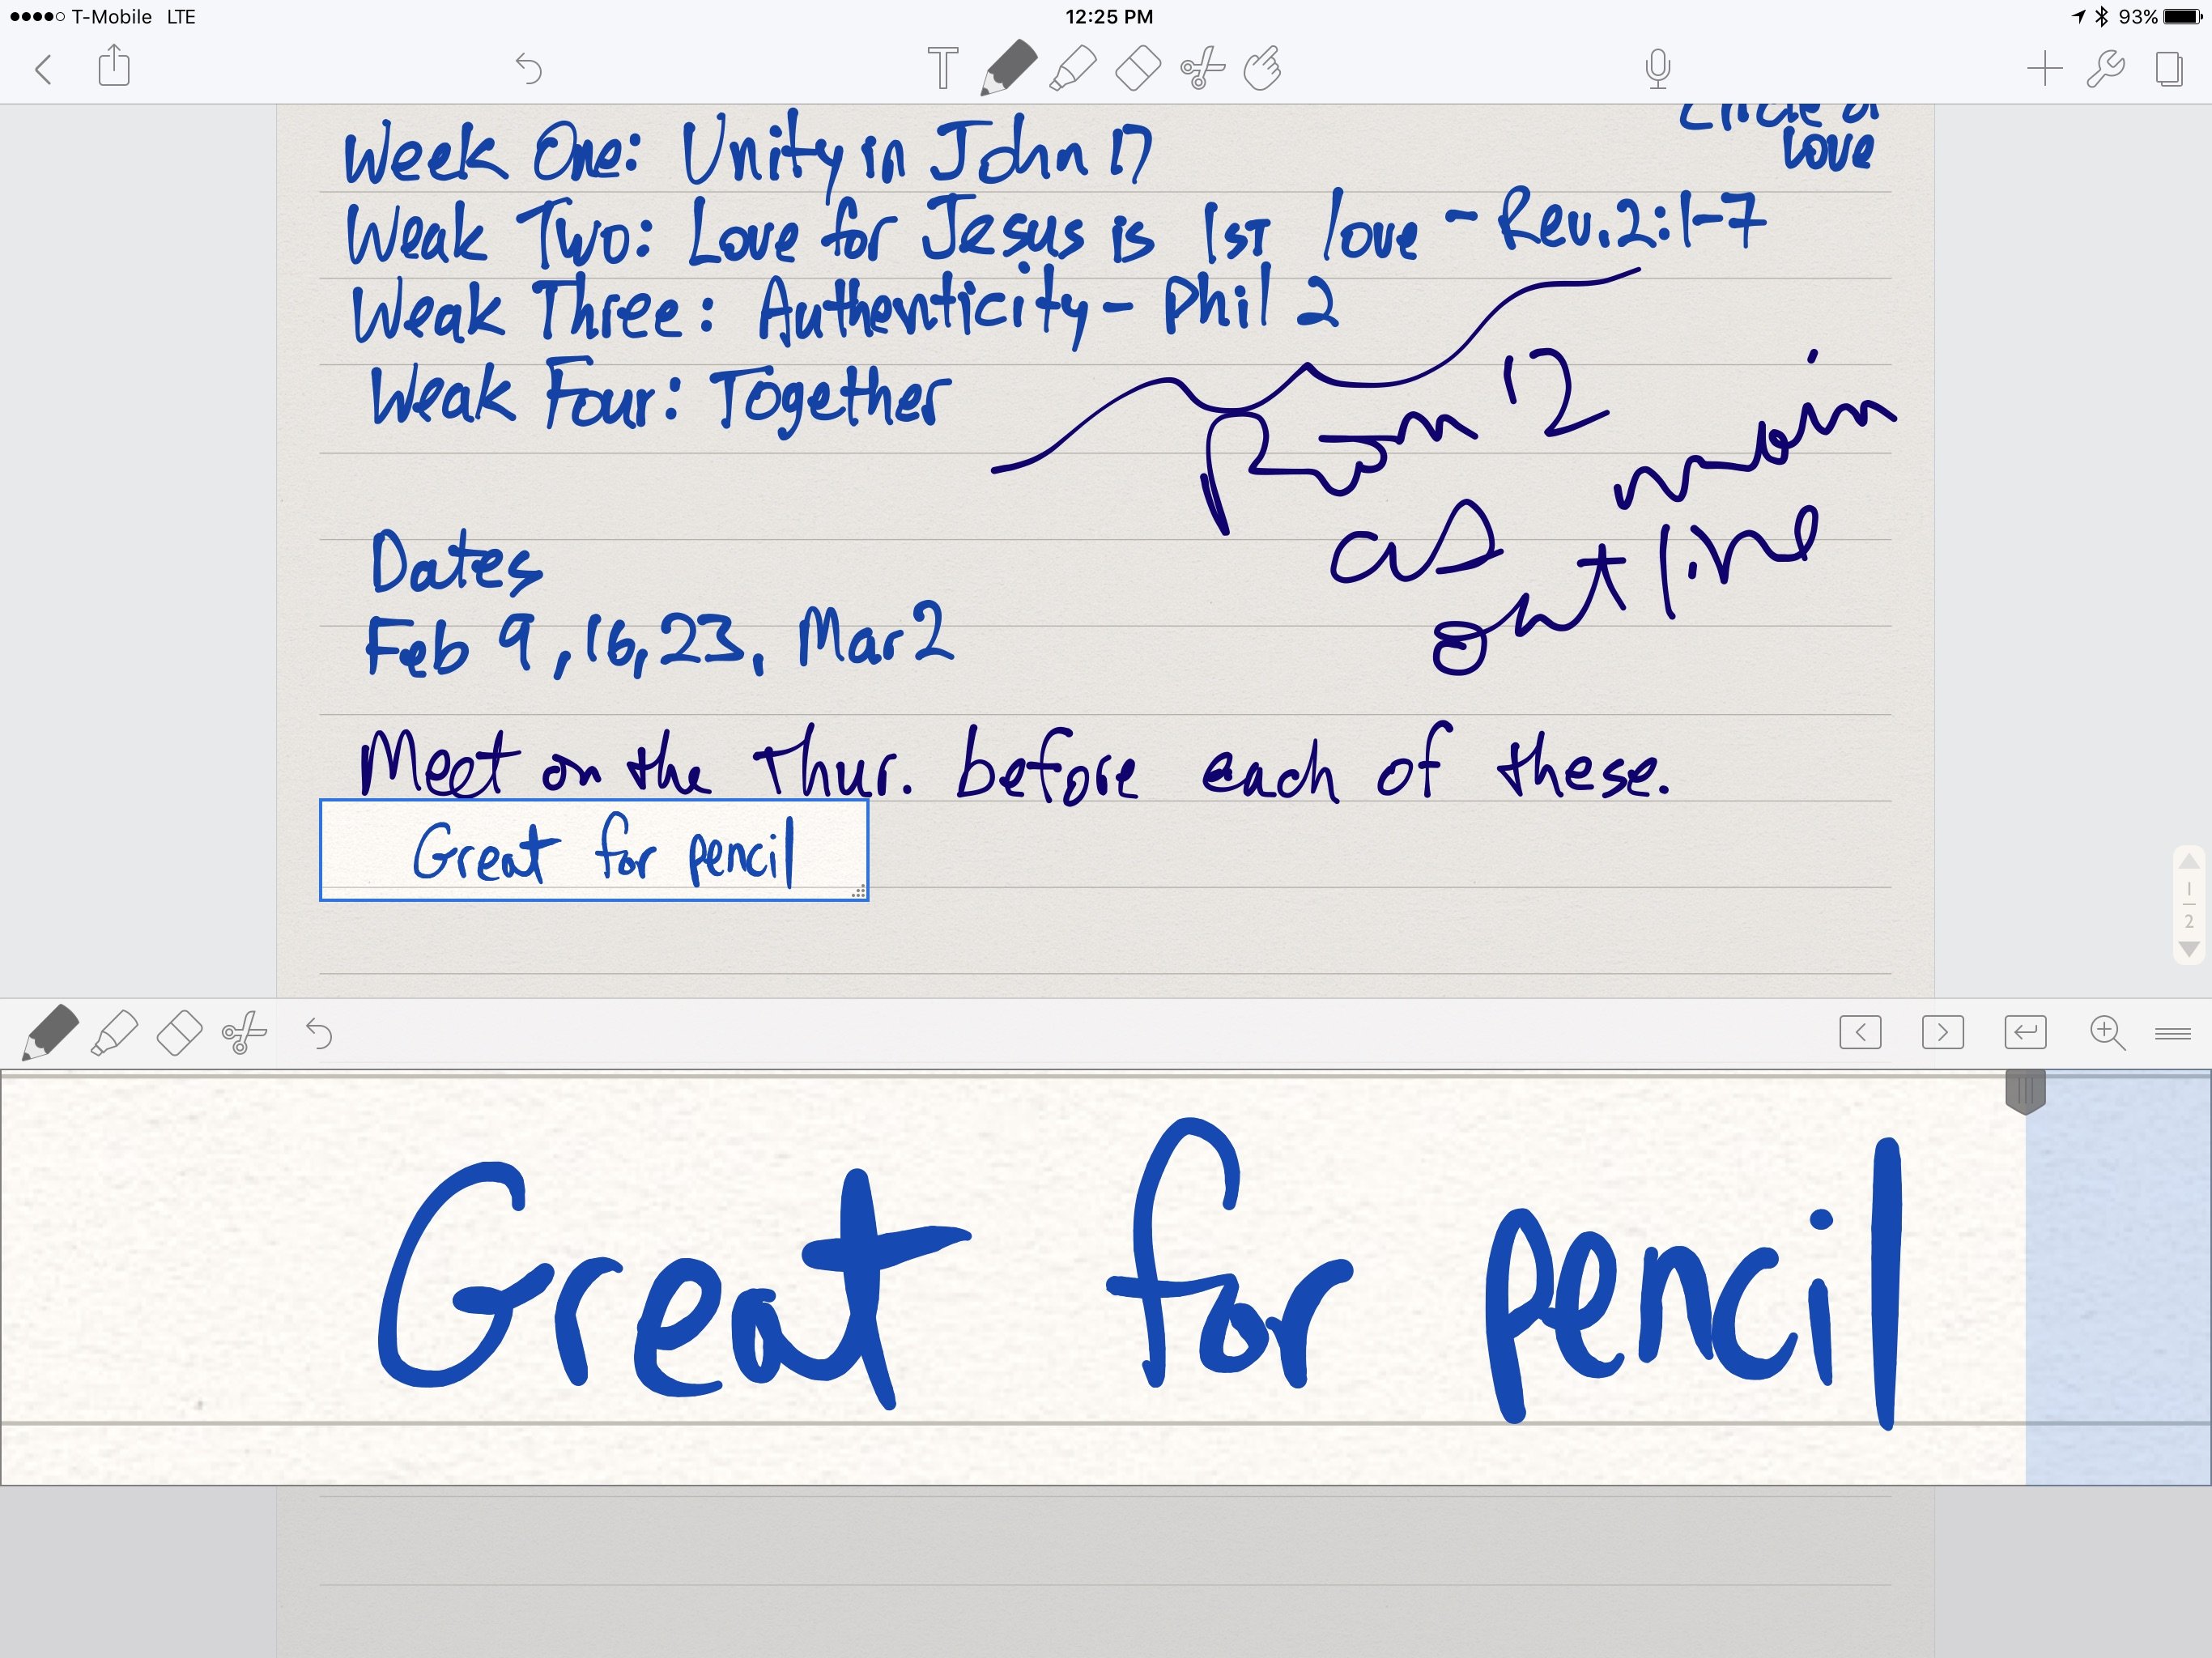 T-Mobile LTE 12:25 PM 93%
T
Circle of
love
Week One: Unity in John 17
Weak Two: Love for Jesus is 1st love - Rev. 2:1-7
Weak Three: Authenticity - Phil 2
Weak Four: Together
Rom 12
as main
outline
Dates
Feb 9, 16, 23, Mar 2
Meet on the Thur. before each of these.
Great for pencil
1
2
Great for pencil